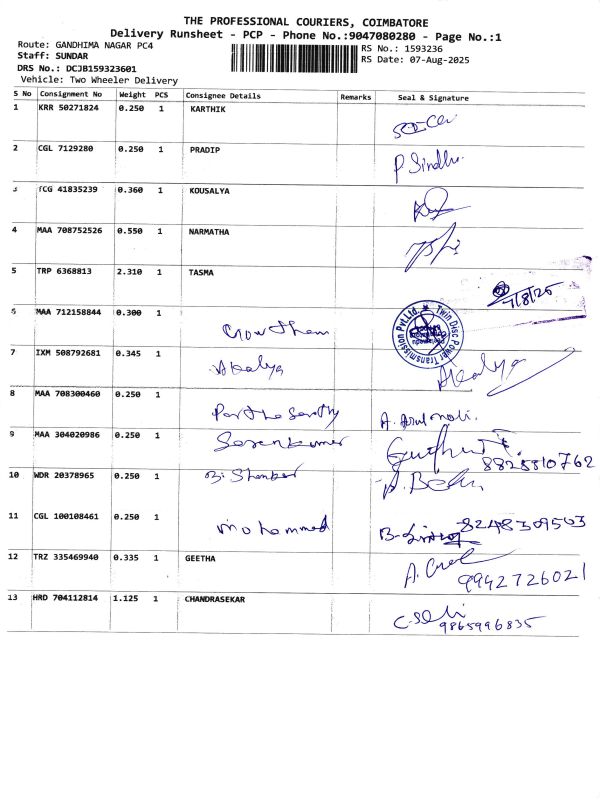 THE PROFESSIONAL COURIERS, COIMBATORE
Delivery Runsheet - PCP - Phone No.:9047080280 - Page No.:1
Route: GANDHIMA NAGAR PC4
Staff: SUNDAR
DRS No.: DCJB159323601
Vehicle: Two Wheeler Delivery
RS No.: 1593236
RS Date: 07-Aug-2025
S No Consignment No Weight PCS Consignee Details Remarks Seal & Signature
1 KRR 50271824 0.250 1 KARTHIK
2 CGL 7129280 0.250 1 PRADIP P. Sindhu
3 TCG 41835239 0.360 1 KOUSALYA
4 MAA 708752526 0.550 1 NARMATHA
5 TRP 6368813 2.310 1 TASMA 7/8/25
6 MAA 712158844 0.300 1 Gowtham Twin Disc Power Transmission Pvt.Ltd.
7 IXM 508792681 0.345 1 Akalya Akalya
8 MAA 708300460 0.250 1 Parthasarthy A. Arul moli.
9 MAA 304020986 0.250 1 Saravankumar 8825810762
10 WDR 20378965 0.250 1 B. Shankar
11 CGL 100108461 0.250 1 mohammed 8248309503
12 TRZ 335469940 0.335 1 GEETHA 9942726021
13 HRD 704112814 1.125 1 CHANDRASEKAR 9865996835